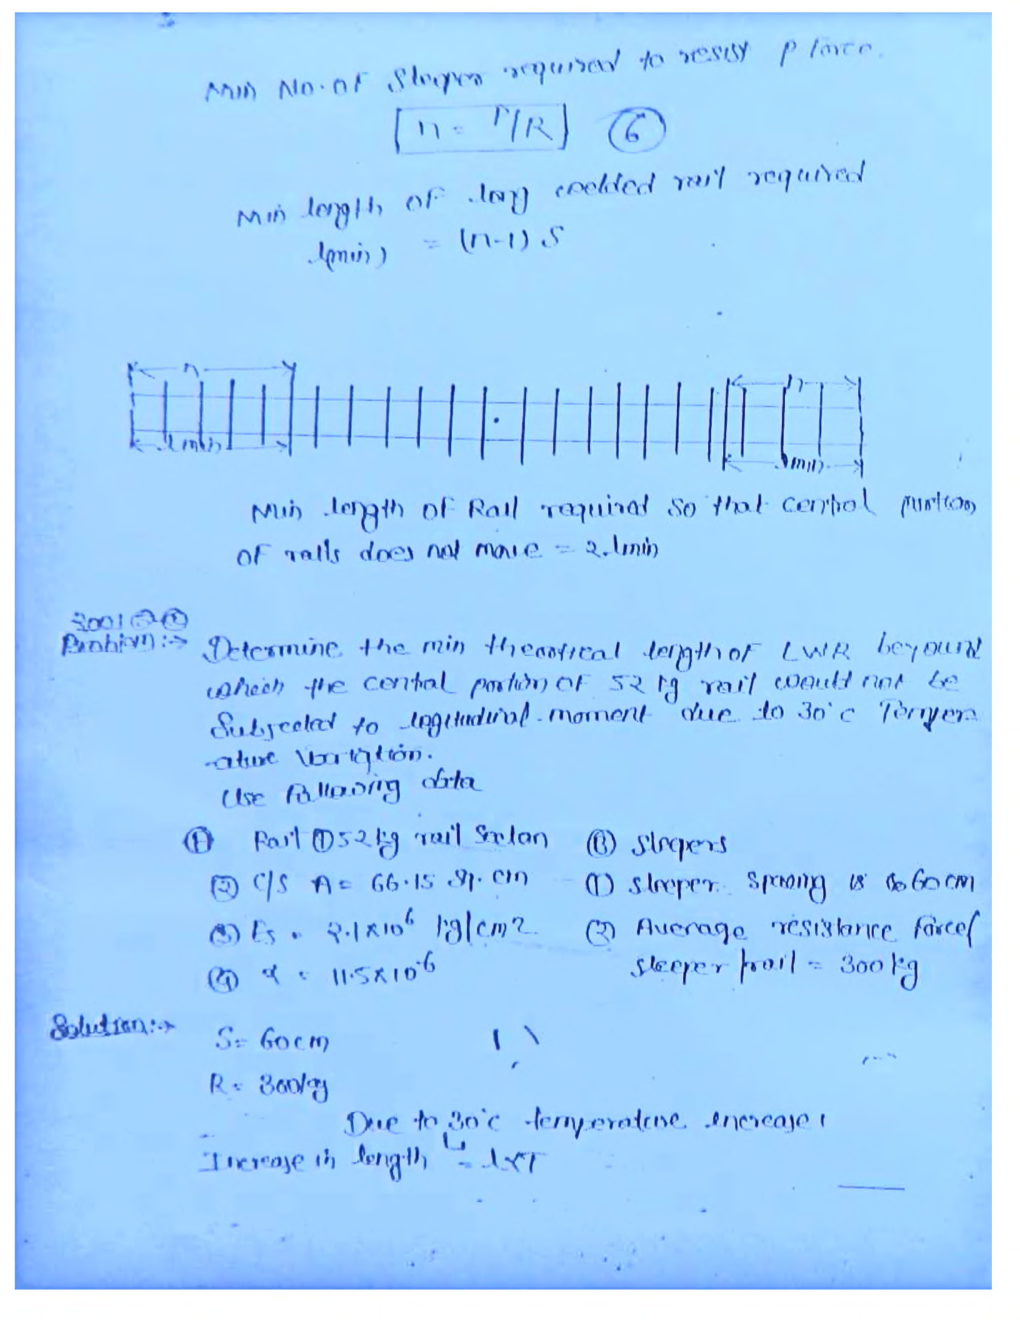 Min No. of Sleeper required to resist P force.
n = P/R 6
Min length of long welded rail required
l(min) = (n-1) S
n n
lmin lmin
Min length of Rail required so that central portion
of rails does not move = 2.lmin
2001
Problem:→ Determine the min theoretical length of LWR beyound
which the central portion of 52 kg rail would not be
Subjected to logitudinal moment due to 30°c Temper
-ature Variation.
Use following data
(A) Rail (1) 52 kg rail Section (B) Sleepers
(2) C/S A = 66.15 sq. cm (1) sleeper spacing is 60 cm
(3) Es = 2.1x10^6 kg/cm2 (2) Average resistance force/
(4) α = 11.5x10^-6 sleeper/rail = 300 kg
Solution:→ S = 60cm
R = 300kg
Due to 30°c temperature increase,
Increase in length = lαT